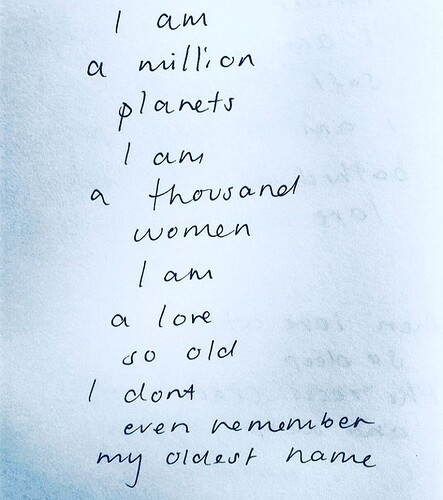 I am
a million
planets
I am
a thousand
women
I am
a love
so old
I dont
even remember
my oldest name